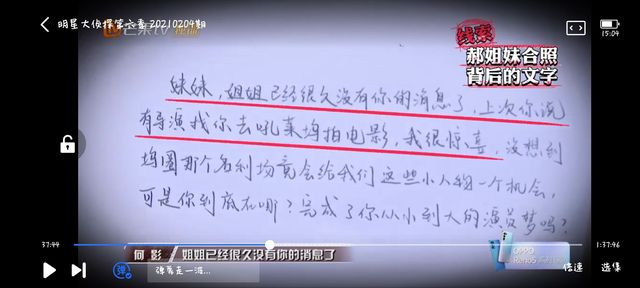 明星大侦探第六季 20210204期
15:04
芒果TV
线索
郝姐妹合照
背后的文字
妹妹，姐姐已经很久没有你的消息了，上次你说
有导演找你去吼莱坞拍电影，我很惊喜，没想到
坞圈那个名利场竟会给我们这些小人物一个机会，
可是你到底在哪？完成了你从小到大的演员梦吗？
37:44
1:37:46
何影 姐姐已经很久没有你的消息了
OPPO
Reno5
弹
弹幕走一波...
倍速
选集